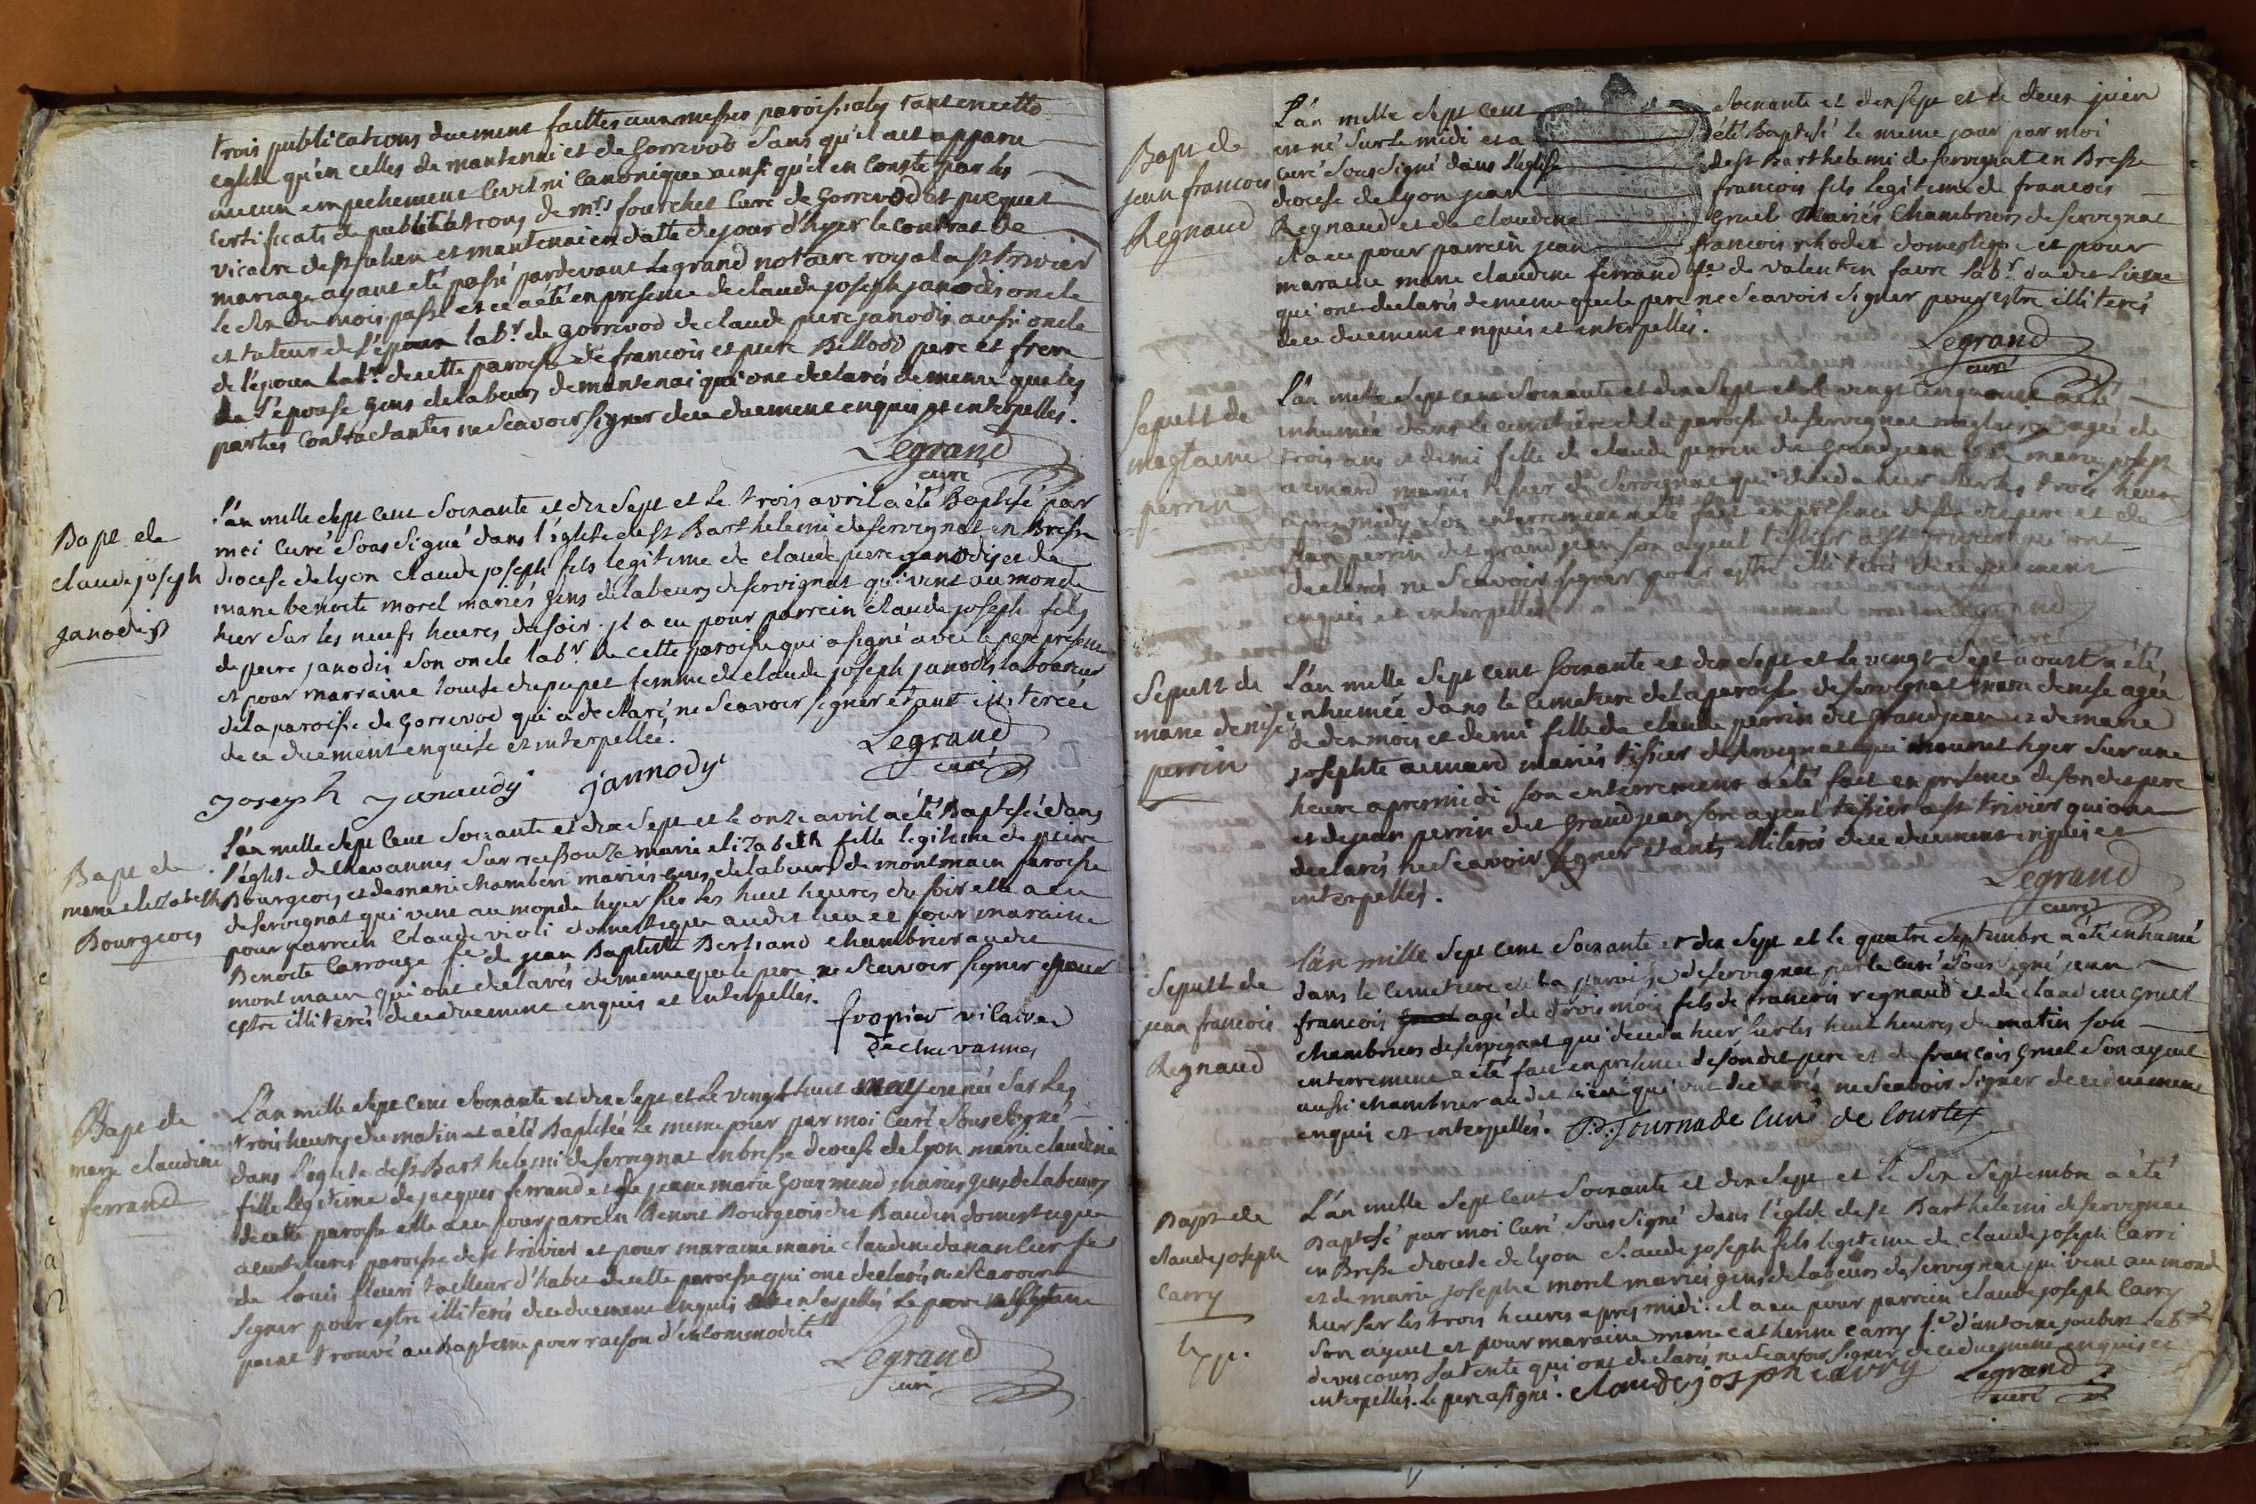 trois publications duement faittes aux messes paroissiales tant en cette
eglise qu'en celles de mantenai et de Gorrevod sans qu'il ait apparu
aucun empechement civil ni canonique ainsi qu'il en conste par les
certificats de publications de mrs fourchet curé de Gorrevod et picquet
vicaire de st julien et mantenai en datte du jour d'hyer le contrat de
mariage ayant été passé pardevant Legrand notaire royal a st trivier
le du mois passé et ce a été en presence de claude joseph janodis oncle
et tuteur de l'epoux labr de gorrevod de claude piere janodis aussi oncle
de l'epoux labr de cette paroisse de francois et piere Billod pere et frere
de l'epouse gens de labeurs de mantenai qui ont declarés de meme que les
parties contractantes ne scavoir signer de ce duement enquis et interpellés.
Legrand
curé
Bapt de
claude joseph
janodis
L'an mille sept cent soixante et dix sept et le trois avril a été Baptisé par
moi curé sous signé dans l'eglise de st Barthelemi de servignat en Bresse
diocese de lyon claude joseph fils legitime de claude piere janodis et de
marie benoite morel mariés gens de labeurs de servignat qui vint au monde
hier sur les neufs heures du soir. il a eu pour parrein claude joseph fils
de piere janodis son oncle labr de cette paroisse qui a signé avec le pere present
et pour marraine louise dupupet femme de claude joseph janodis laboureur
de la paroisse de Gorrevod qui a declaré ne scavoir signer etant illiterée
de ce duement enquise et interpellée.
Legrand
curé
Joseph Janaudy jannodys
Bapt de
marie elizabeth
Bourgeois
L'an mille sept cent soixante et dix sept et le onze avril a été Baptisée dans
l'eglise de chavannes sur ressouze marie elizabeth fille legitime de piere
Bourgeois et de marie chamberi mariés gens de labeurs de montmain paroisse
de servignat qui vint au monde hyer sur les huit heures du soir elle a eu
pour parrein claude violi domestique audit lieu et pour maraine
Benoite Carrouge fe de jean Baptiste Bertrand chambrier audit
montmain qui ont declarés de meme que le pere ne scavoir signer pour
estre illiterés de ce duement enquis et interpellés.
fropier vicaire
de chavannes
Bapt de
marie claudine
ferrand
L'an mille sept cent soixante et dix sept et le vingt huit may est née sur les
trois heures du matin et a été Baptisée le meme jour par moi curé sous signé
dans l'eglise de st Barthelemi de servignat en bresse diocese de lyon marie claudine
fille legitime de jacques ferrand et de jeane marie Gourmend mariés gens de labeurs
de cette paroisse elle a eu pour parrein Benoit Bourgeois dit Baudin domestique
paroisse de st trivier et pour maraine marie claudine fe
de louis fleuri tailleur d'habit de cette paroisse qui ont declarés ne scavoir
signer pour estre illiterés de ce duement enquis et interpellés le pere ne s'etant
point trouvé au Bapteme pour raison d'incommodité
Legrand
curé
Bapt de
jean francois
Regnaud
L'an mille sept cent soixante et dix sept et le deux juin
est né sur le midi et a été Baptisé le meme jour par moi
curé sous signé dans l'eglise de st Barthelemi de servignat en Bresse
diocese de lyon jean francois fils legitime de francois
Regnaud et de claudine Gruel mariés chambriers de servignat
il a eu pour parrein jean francois rhodet domestique et pour
maraine marie claudine ferrand fe de valentin favre labr du dit lieu
qui ont declarés de meme que le pere ne scavoir signer pour estre illiterés
de ce duement enquis et interpellés.
Legrand
curé
Sepult de
magdaine
perrin
L'an mille sept cent soixante et dix sept et le vingt cinq aout a été
inhumée dans le cimetiere de la paroisse de servignat magdaine agée de
trois ans et demi fille de claude perrin dit Grandjean et de marie josephte
aimard mariés tissier de servignat qui deceda hier sur les trois heures
apres midy son enterrement a été fait en presence de son dit pere et de
jean perrin dit grandjean son ayeul tissier a st trivier qui ont
declarés ne scavoir signer pour estre illiterés de ce duement
enquis et interpellés
Legrand
curé
Sepult de
marie denise
perrin
L'an mille sept cent soixante et dix sept et le vingt sept aoust a été
inhumée dans le cimetiere de la paroisse de servignat marie denise agée
de dix mois et demi fille de claude perrin dit grandjean et de marie
josephte aimard mariés tissier de servignat qui mourut hyer sur une
heure apres midi son enterrement a été fait en presence de son dit pere
et de jean perrin dit grandjean son ayeul tissier a st trivier qui ont
declarés ne scavoir signer etants illiterés de ce duement enquis et
interpellés.
Legrand
curé
Sepult de
jean francois
Regnaud
L'an mille sept cent soixante et dix sept et le quatre septembre a été inhumé
dans le cimetiere de la paroisse de servignat par le curé sous signé jean
francois agé de trois mois fils de francois regnaud et de claudine gruel
chambriers de servignat qui deceda hier sur les huit heures du matin son
enterrement a été fait en presence de son dit pere et de francois gruel son ayeul
aussi chambrier au dit lieu qui ont declarés ne scavoir signer de ce duement
enquis et interpellés. P. Tournade Curé de Courtes
Bapt de
claude joseph
Carry
L'an mille sept cent soixante et dix sept et le six septembre a été
Baptisé par moi curé sous signé dans l'eglise de st Barthelemi de servignat
en Bresse diocese de lyon claude joseph fils legitime de claude joseph Carri
et de marie josephe morel mariés gens de labeurs de servignat qui vint au monde
hier sur les trois heures apres midi. il a eu pour parrein claude joseph Carry
son ayeul et pour maraine marie catherine carry fe d'antoine joubert labr
de vescours sa tente qui ont declarés ne scavoir signer de ce duement enquis et
interpellés. le pere a signé. claude joseph carry
Legrand
curé